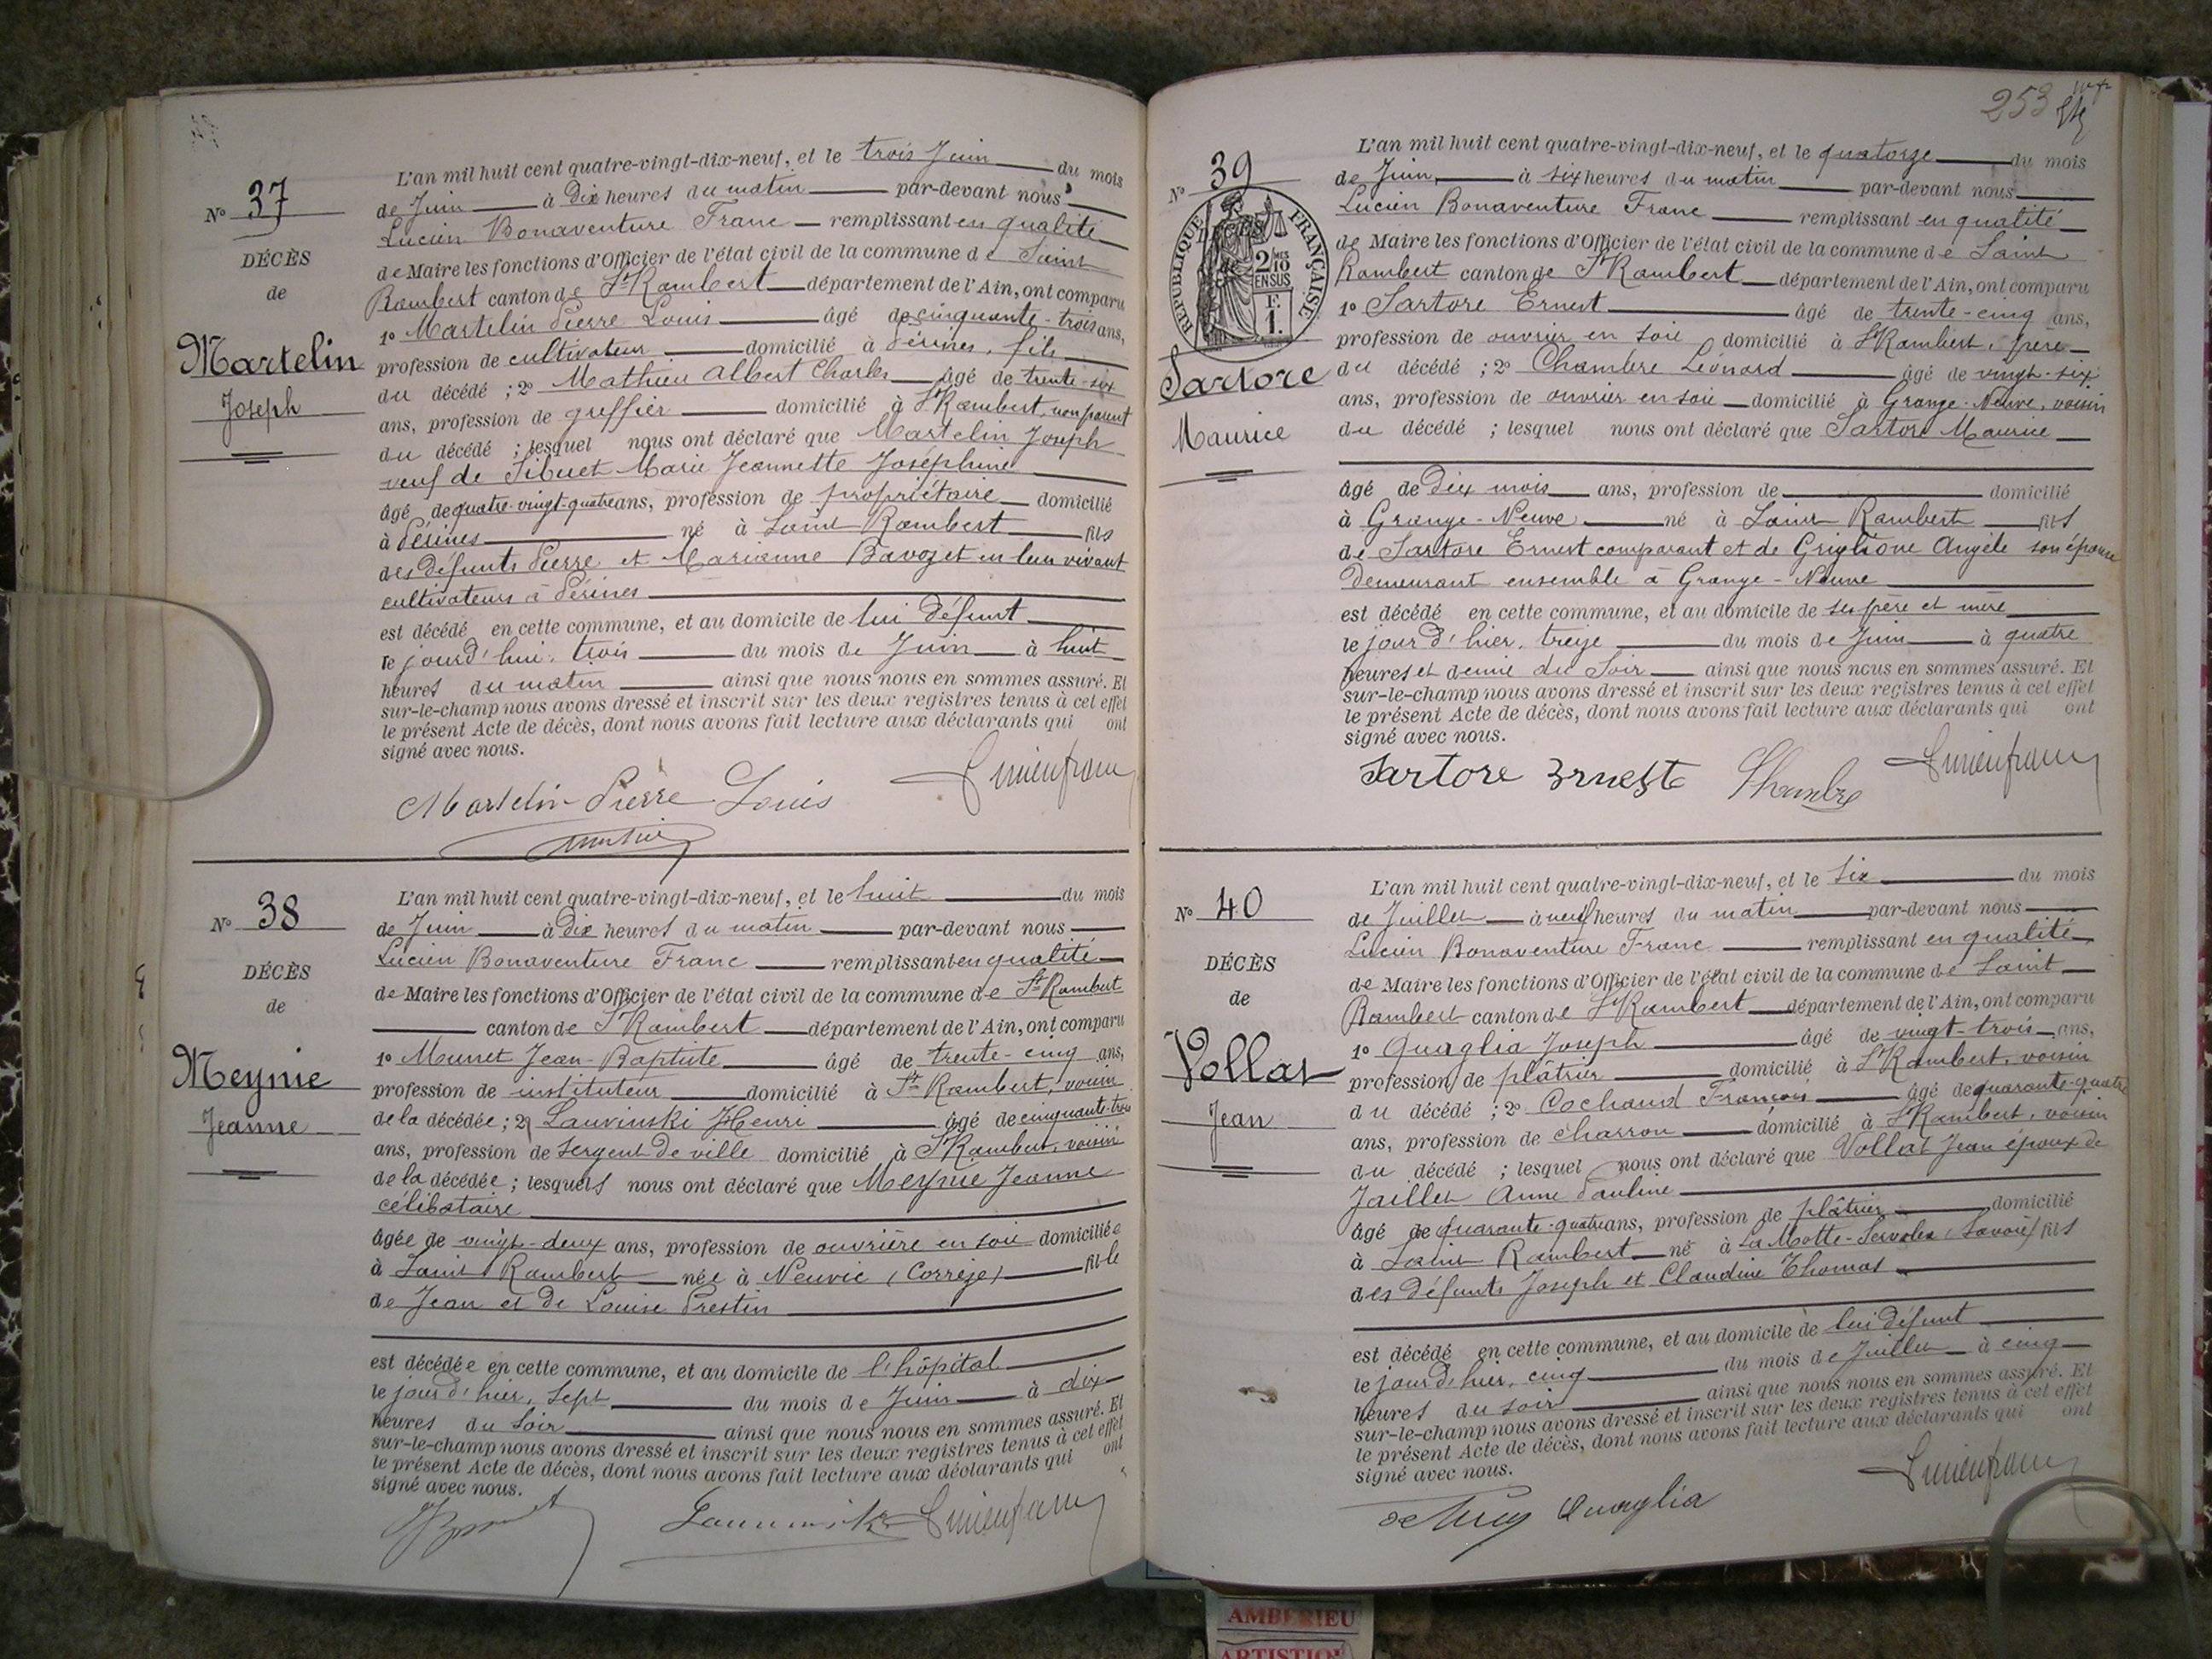 N° 37
DÉCÈS
de
Martelin
Joseph
L'an mil huit cent quatre-vingt-dix-neuf, et le trois Juin du mois
de Juin à Dix heures du matin par-devant nous
Lucien Bonaventure Franc remplissant en qualité
de Maire les fonctions d'Officier de l'état civil de la commune de Saint
Rambert canton de St Rambert département de l'Ain, ont comparu
1° Martelin Pierre Louis âgé de cinquante-trois ans,
profession de cultivateur domicilié à Sérines, fils
du décédé ; 2° Mathieu Albert Charles âgé de trente-six
ans, profession de greffier domicilié à St Rambert, non parent
du décédé ; lesquel nous ont déclaré que Martelin Joseph
veuf de Sibuet Marie Jeannette Joséphine
âgé de quatre-vingt-quatre ans, profession de propriétaire domicilié
à Sérines né à Saint Rambert fils
des défunts Pierre et Marianne Bavozet en leur vivant
cultivateurs à Sérines
est décédé en cette commune, et au domicile de lui défunt
le jourd'hui, trois du mois de Juin à huit
heures du matin ainsi que nous nous en sommes assuré. Et
sur-le-champ nous avons dressé et inscrit sur les deux registres tenus à cet effet
le présent Acte de décès, dont nous avons fait lecture aux déclarants qui ont
signé avec nous.
Martelin Pierre Louis
Lucien franc
N° 38
DÉCÈS
de
Meynie
Jeanne
L'an mil huit cent quatre-vingt-dix-neuf, et le huit du mois
de Juin à Dix heures du matin par-devant nous
Lucien Bonaventure Franc remplissant en qualité
de Maire les fonctions d'Officier de l'état civil de la commune de St Rambert
canton de St Rambert département de l'Ain, ont comparu
1° Munet Jean-Baptiste âgé de trente-cinq ans,
profession de instituteur domicilié à St Rambert, voisin
de la décédée ; 2° Lauvinski Henri âgé de cinquante-trois
ans, profession de sergent de ville domicilié à St Rambert, voisin
de la décédée ; lesquels nous ont déclaré que Meynie Jeanne
célibataire
âgée de vingt-deux ans, profession de ouvrière en soie domiciliée
à Saint Rambert née à Neuvic (Corrèze) fille
de Jean et de Louise Prestin
est décédée en cette commune, et au domicile de l'hôpital
le jour d'hier, sept du mois de Juin à dix
heures du soir ainsi que nous nous en sommes assuré. Et
sur-le-champ nous avons dressé et inscrit sur les deux registres tenus à cet effet
le présent Acte de décès, dont nous avons fait lecture aux déclarants qui ont
signé avec nous.
Lucien franc
253
N° 39
RÉPUBLIQUE FRANÇAISE
DÉCÈS
de
2 MES
10
EN SUS
F.
1.
Sartore
Maurice
L'an mil huit cent quatre-vingt-dix-neuf, et le quatorze du mois
de Juin à six heures du matin par-devant nous
Lucien Bonaventure Franc remplissant en qualité
de Maire les fonctions d'Officier de l'état civil de la commune de Saint
Rambert canton de St Rambert département de l'Ain, ont comparu
1° Sartore Ernest âgé de trente-cinq ans,
profession de ouvrier en soie domicilié à St Rambert, père
du décédé ; 2° Chambre Léonard âgé de vingt-six
ans, profession de ouvrier en soie domicilié à Grange-Neuve, voisin
du décédé ; lesquel nous ont déclaré que Sartore Maurice
âgé de Dix mois ans, profession de domicilié
à Grange-Neuve né à Saint Rambert fils
de Sartore Ernest comparant et de Griglione Angèle son épouse
demeurant ensemble à Grange-Neuve
est décédé en cette commune, et au domicile de ses père et mère
le jour d'hier, treize du mois de Juin à quatre
heures et demie du Soir ainsi que nous nous en sommes assuré. Et
sur-le-champ nous avons dressé et inscrit sur les deux registres tenus à cet effet
le présent Acte de décès, dont nous avons fait lecture aux déclarants qui ont
signé avec nous.
Sartore Erneste Chambre Lucien franc
N° 40
DÉCÈS
de
Vollat
Jean
L'an mil huit cent quatre-vingt-dix-neuf, et le six du mois
de Juillet à neuf heures du matin par-devant nous
Lucien Bonaventure Franc remplissant en qualité
de Maire les fonctions d'Officier de l'état civil de la commune de Saint
Rambert canton de St Rambert département de l'Ain, ont comparu
1° Quaglia Joseph âgé de vingt-trois ans,
profession de plâtrier domicilié à St Rambert, voisin
du décédé ; 2° Cochaud François âgé de quarante-quatre
ans, profession de charron domicilié à St Rambert, voisin
du décédé ; lesquel nous ont déclaré que Vollat Jean époux de
Jaillet Anne Pauline
âgé de quarante-quatre ans, profession de plâtrier domicilié
à Saint Rambert né à La Motte-Servolex (Savoie) fils
des défunts Joseph et Claudine Thomas
est décédé en cette commune, et au domicile de lui défunt
le jour d'hier, cinq du mois de Juillet à cinq
heures du soir ainsi que nous nous en sommes assuré. Et
sur-le-champ nous avons dressé et inscrit sur les deux registres tenus à cet effet
le présent Acte de décès, dont nous avons fait lecture aux déclarants qui ont
signé avec nous.
Quaglia Lucien franc
AMBERIEU